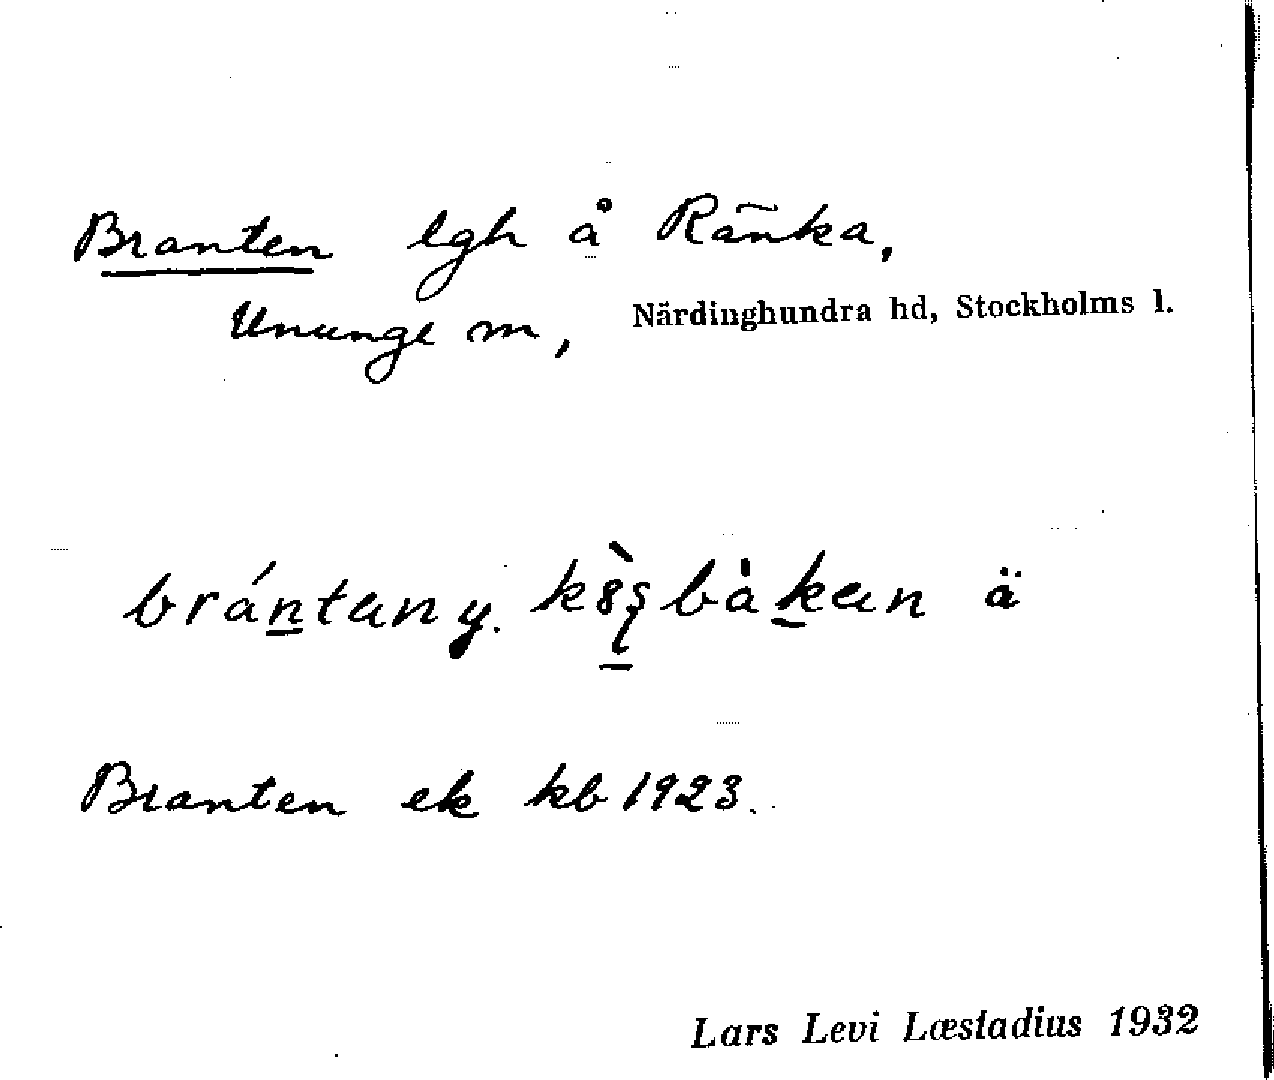 Branten lgh å Ränka,
Ununge m, Närdinghundra hd, Stockholms l.
brántan y. bàkan ä
Branten ek kb 1923.
Lars Levi Læstadius 1932